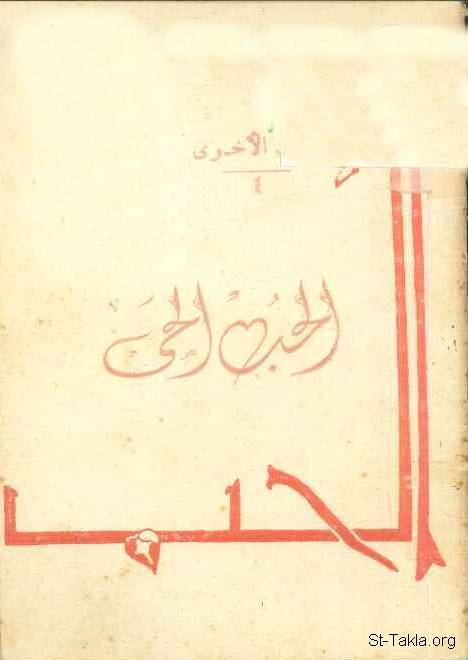 الأخرى
٤
الحُبُّ الحَى
الحب
St-Takla.org